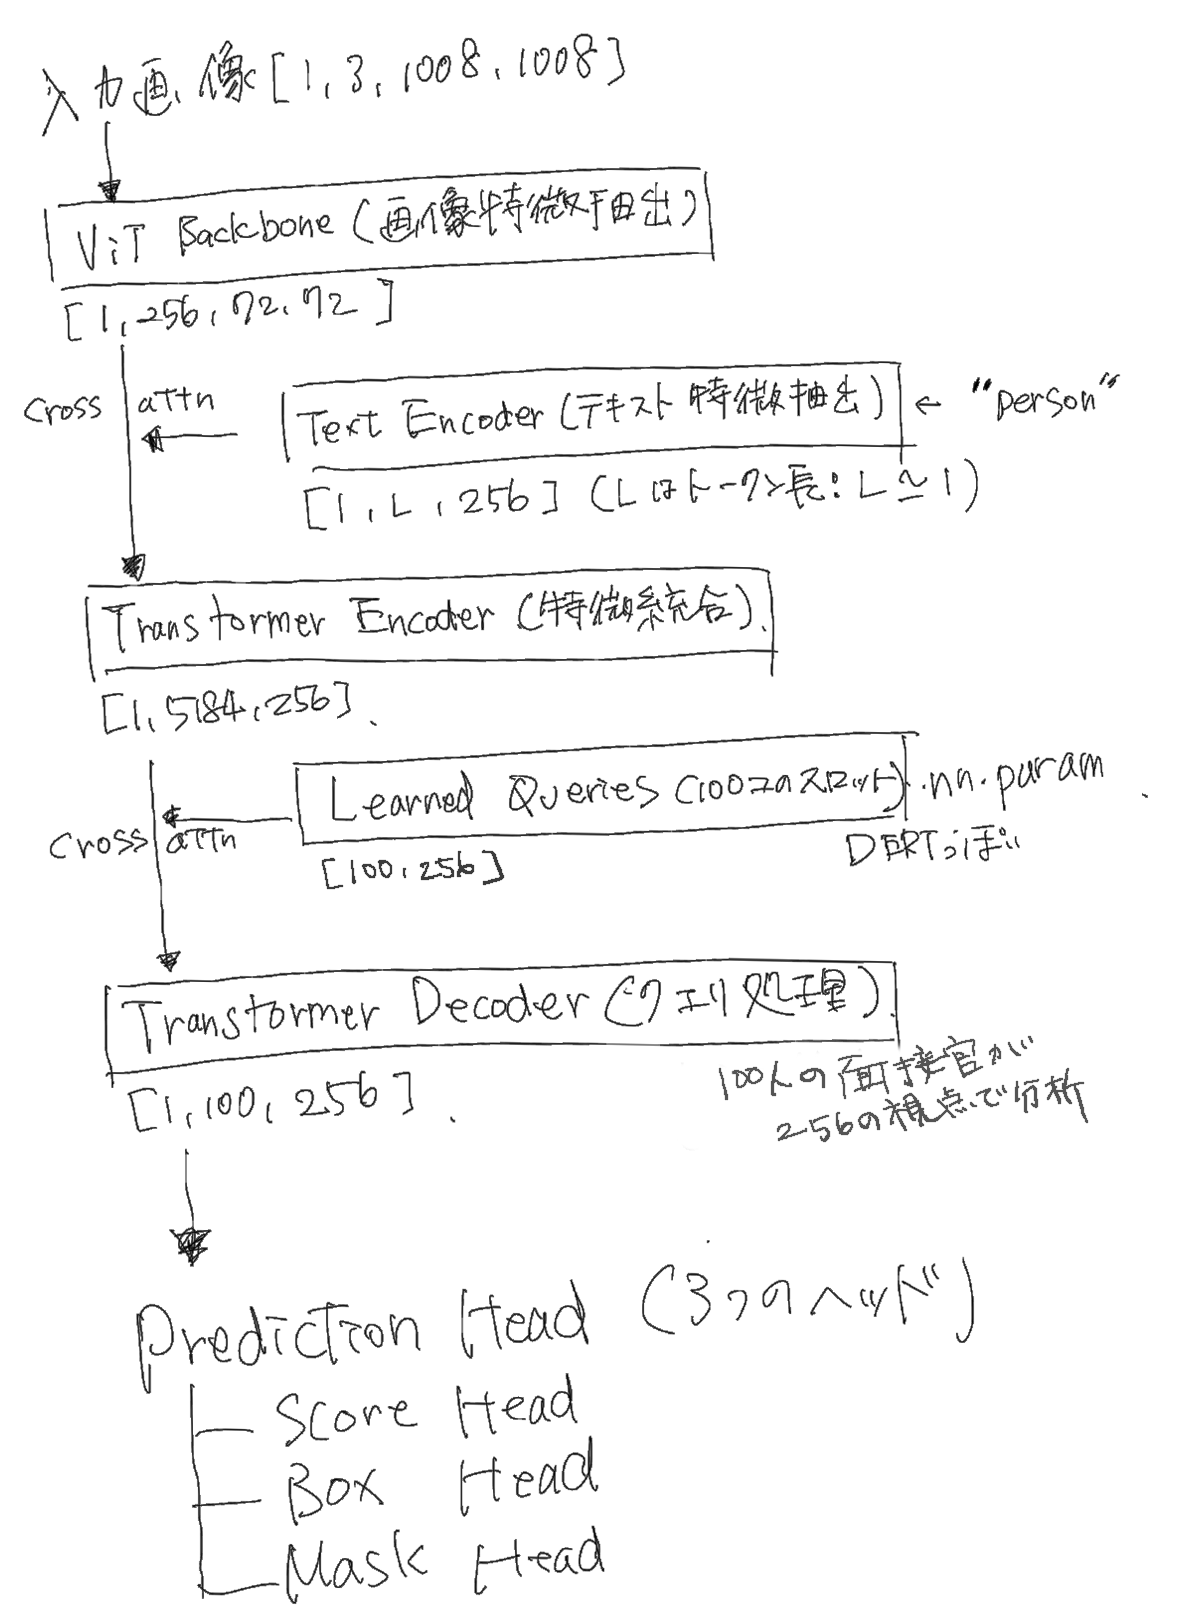 入力画像[1,3,1008,1008]
ViT Backbone(画像特徴抽出)
[1,256,72,72]
cross attn
Text Encoder(テキスト特徴抽出) ← "person"
[1,L,256] (Lはトークン長:L≃1)
Transformer Encoder(特徴統合)
[1,5184,256]
Learned Queries(100コのスロット)・nn.param
cross attn
[100,256]
DERTっぽい
Transformer Decoder(クエリ処理)
[1,100,256]
100人の面接官が
256の視点で分析
Prediction Head (3つのヘッド)
Score Head
Box Head
Mask Head